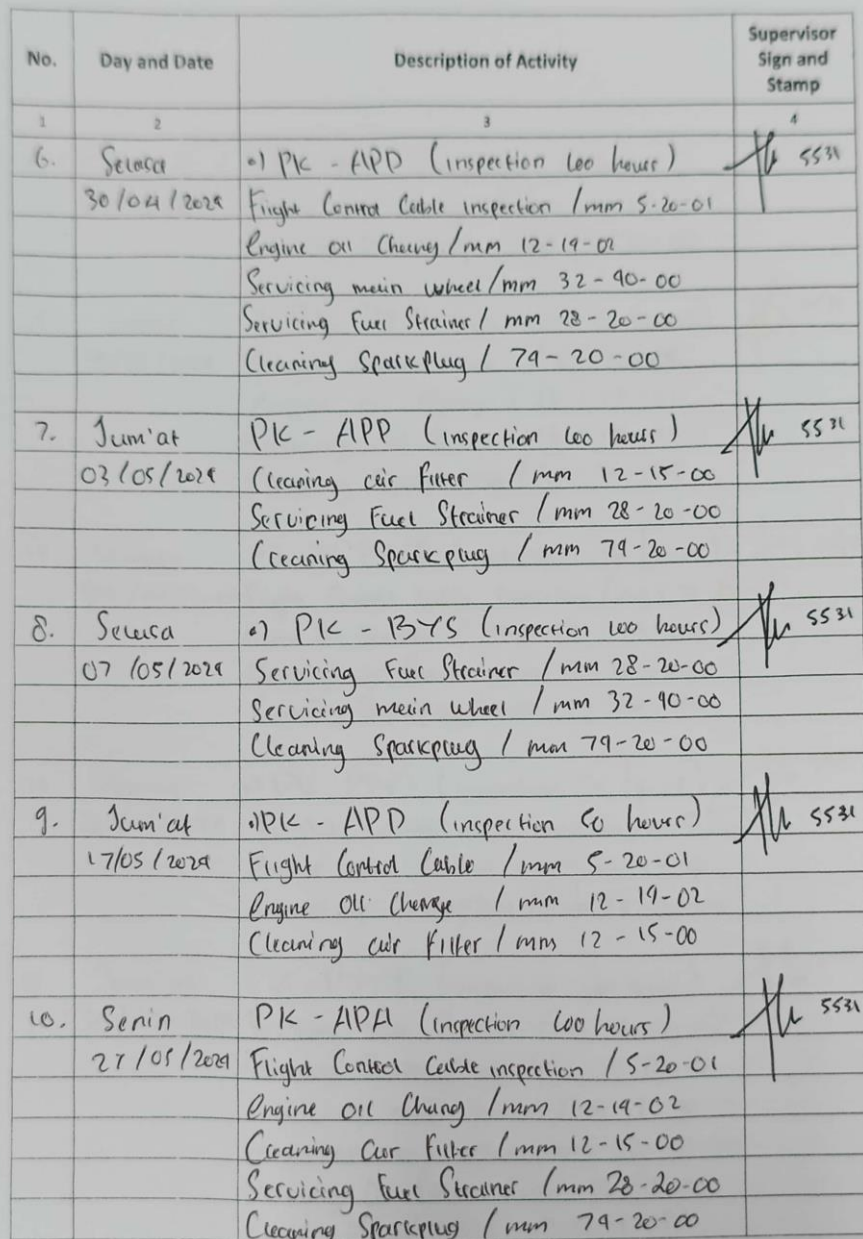 No. Day and Date Description of Activity Supervisor Sign and Stamp
1 2 3 4
6. Selasa •) PK - APD (inspection 100 hours) 5531
30/04/2024 Flight Control Cable inspection /mm 5-20-01
Engine Oil /mm 12-19-02
Servicing main wheel/mm 32-40-00
Servicing Fuel Strainer/ mm 28-20-00
Cleaning Sparkplug / 74-20-00
7. Jum'at PK - APP (inspection 100 hours) 5531
03/05/2024 Cleaning air Filter /mm 12-15-00
Servicing Fuel Strainer /mm 28-20-00
Cleaning Sparkplug /mm 74-20-00
8. Selasa •) PK - BYS (inspection 100 hours) 5531
07/05/2024 Servicing Fuel Strainer /mm 28-20-00
Servicing main wheel /mm 32-40-00
Cleaning Sparkplug / mm 74-20-00
9. Jum'at •) PK - APD (inspection 50 hours) 5531
17/05/2024 Flight Control Cable /mm 5-20-01
Engine Oil Change / mm 12-19-02
Cleaning air Filter / mm 12-15-00
10. Senin PK - APA (inspection 100 hours) 5531
27/05/2024 Flight Control Cable inspection / 5-20-01
Engine Oil Chang /mm 12-19-02
Cleaning air Filter /mm 12-15-00
Servicing Fuel Strainer /mm 28-20-00
Cleaning Sparkplug /mm 74-20-00